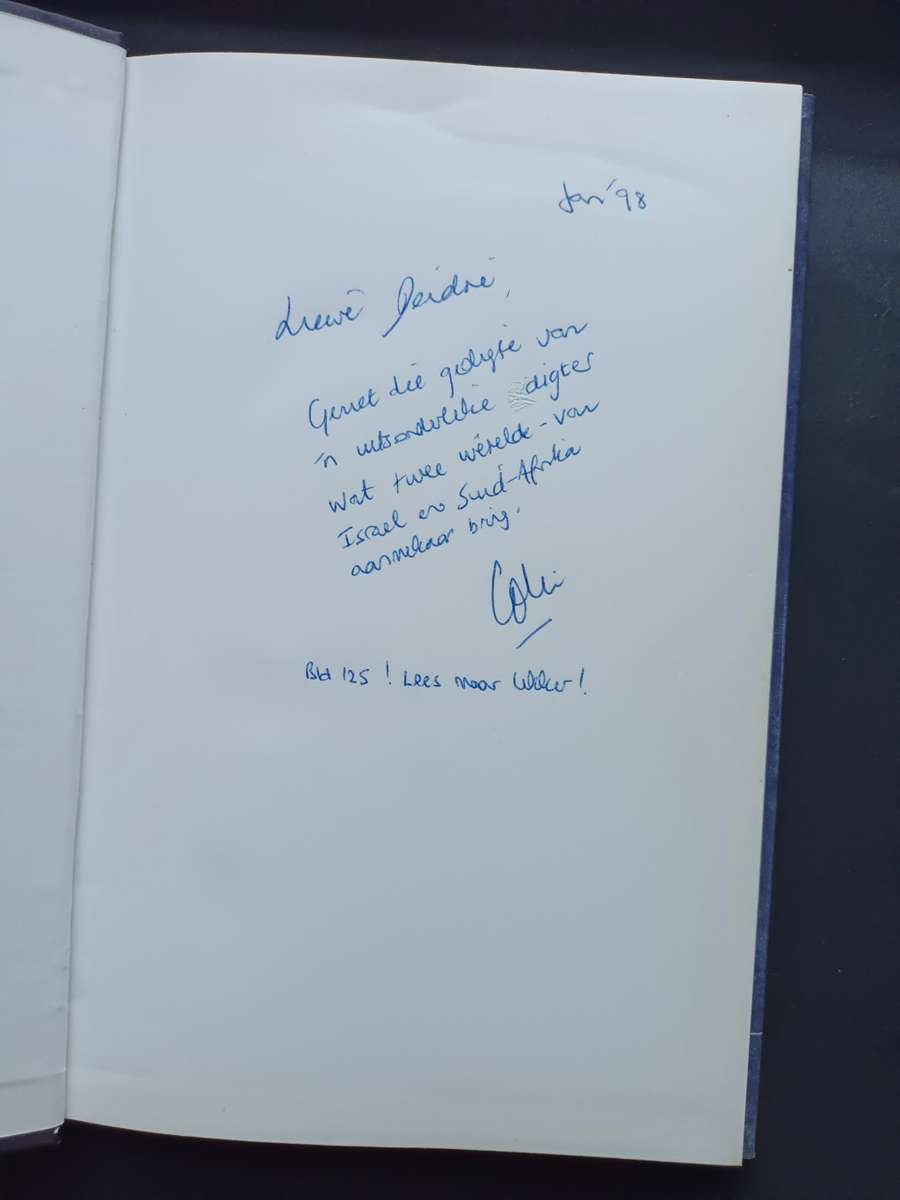 Jan '98
Liewe Deidré,
Geniet die gedigte van
'n uitsonderlike digter
wat twee wêrelde - van
Israel en Suid-Afrika
aanmekaar bring.
Colin
Bld 125! Lees maar lekker!